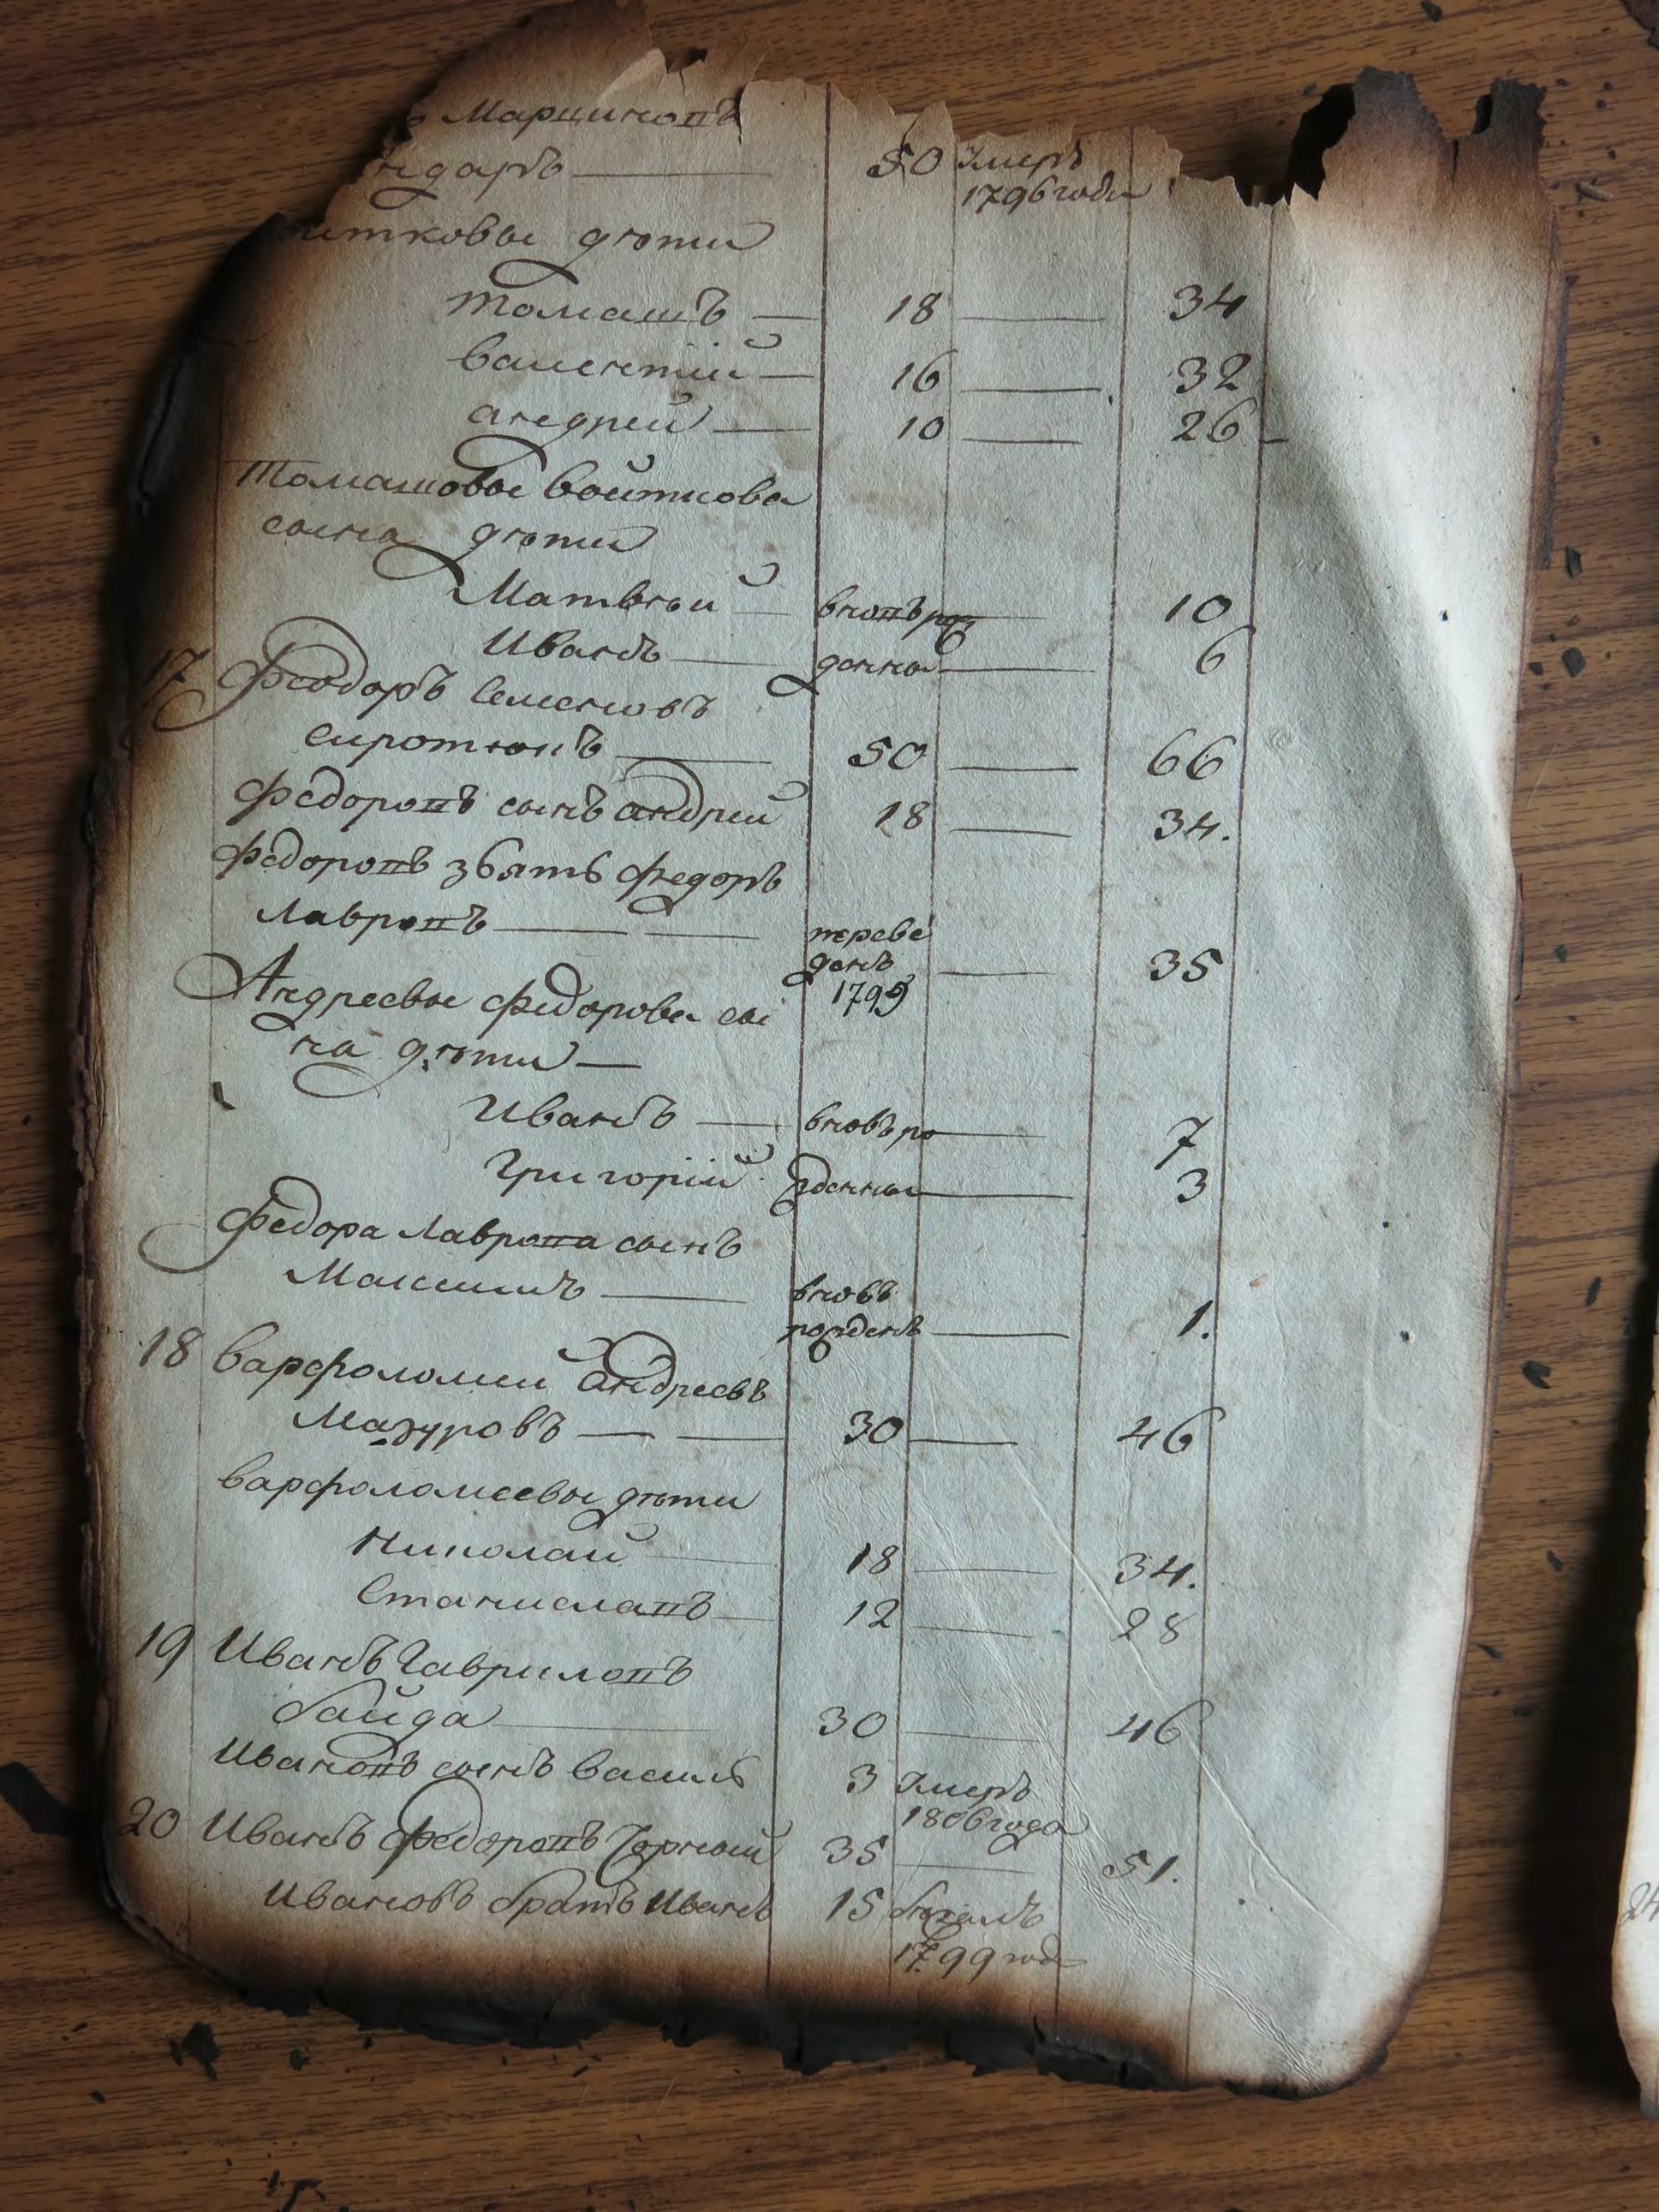 Марциновъ
ндаръ — 50 Умеръ
1796 года
итковы дѣти
Томашъ — 18 — 34
Валентій — 16 — 32
Андрей — 10 — 26
Томашовы Войткова
сына дѣти
Матвѣй — вновъ рож — 10
Иванъ — денны — 6
17 Феодоръ Семеновъ
Сиротюкъ — 50 — 66
Федоровъ сынъ Андрей 18 — 34.
Федоровъ збять Федоръ
Лавровъ — — переве
денъ — 35
1799
Андреевы Федорова сы
на дѣти —
Иванъ — вновъ ро — 7
Григорій жденны — 3
Федора Лаврова сынъ
Максимъ — вновъ
рожденъ — 1.
18 Варфоломей Андреевъ
Мазуровъ — — 30 — 46
Варфоломеевы дѣти
Николай — 18 — 34.
Станиславъ — 12 — 28
19 Иванъ Гавриловъ
Байда — 30 — 46
Ивановъ сынъ Василь 3 Умеръ
1806 года
20 Иванъ Федоровъ Чорный 35 — 51.
Ивановъ братъ Иванъ 15 бѣжалъ
1799 год